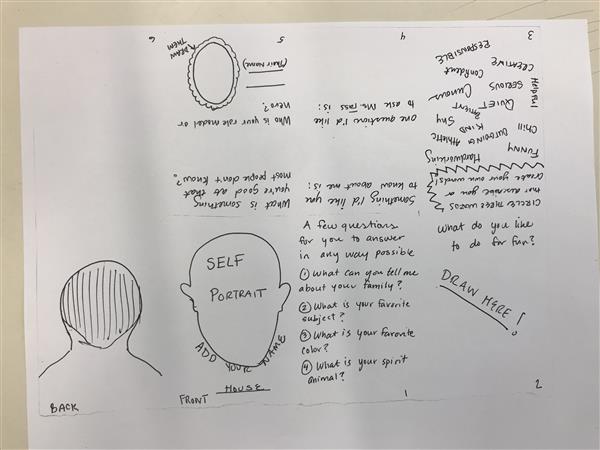 BACK
SELF
PORTRAIT
ADD YOUR NAME
HOUSE
FRONT
A few questions
for you to answer
in any way possible
① What can you tell me
about your family?
② What is your favorite
subject?
③ What is your favorite
color?
④ What is your spirit
animal?
1
What do you like
to do for fun?
DRAW HERE!
2
CIRCLE THREE WORDS
that describe you or
create your own words!
Hardworking
FUNNY
Athletic
Chill
KIND
Shy
PATIENT
QUIET
Curious
Helpful
SERIOUS
Confident
CREATIVE
RESPONSIBLE
3
Something I'd like you
to know about me is:
One question I'd like
to ask is:
4
What is something
you're good at that
most people don't know?
Who is your role model or
hero?
(Their Name)
5
DRAW
THEM
6